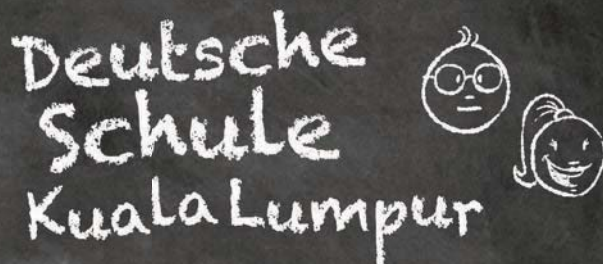 Deutsche
Schule
Kuala Lumpur